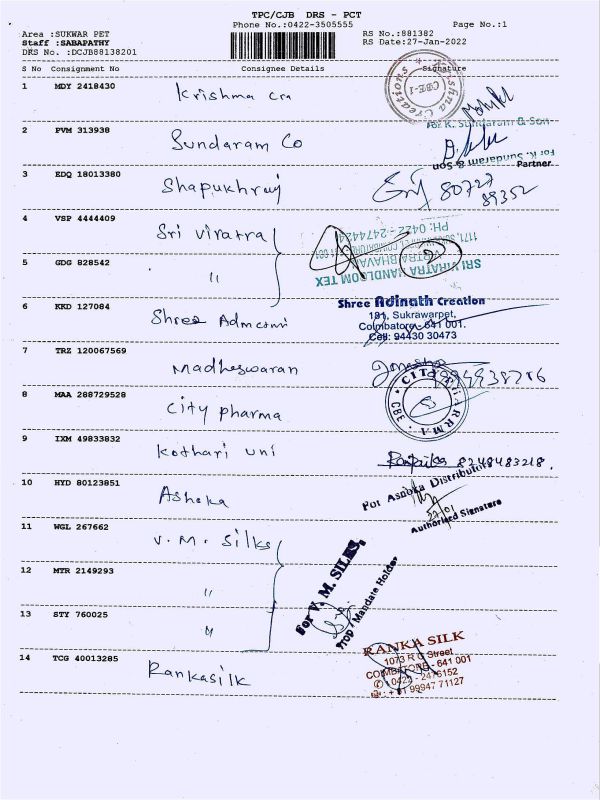 TPC/CJB DRS - PCT
Phone No.:0422-3505555
Page No.:1
Area :SUKWAR PET
Staff :SABAPATHY
DRS No. :DCJB88138201
RS No.:881382
RS Date:27-Jan-2022
S No Consignment No Consignee Details Signature
1 MDY 2418430 Krishma cra
Krishna Creations CBE-1
2 PVM 313938 Sundaram Co
For K. Sundaram & Son
For K. Sundaram & Son
Partner
3 EDQ 18013380 Shapukhraj
80727
89352
4 VSP 4444409 Sri Viratra
SRI VIRATRA HANDLOOM TEX
PH: 0422 - 2474424
5 GDG 828542 "
6 KKD 127084 Shree Admatmi
Shree Adinath Creation
181, Sukrawarpet,
Coimbatore - 641 001.
Cell: 94430 30473
7 TRZ 120067569 Madheswaran
8 MAA 288729528 City pharma
CBE - 1
9 IXM 49833832 Kothari uni
8248483218.
10 HYD 80123851 Ashoka
For Ashoka Distributors
27/01
Authorised Signature
11 WGL 267662 V. M. Silks
For V. M. SILKS,
Prop / Mandate Holder
12 MTR 2149293 "
13 STY 760025 "
14 TCG 40013285 Rankasilk
RANKA SILK
1073 R G Street
COIMBATORE - 641 001
0422 - 2476152
+ 91 99947 71127